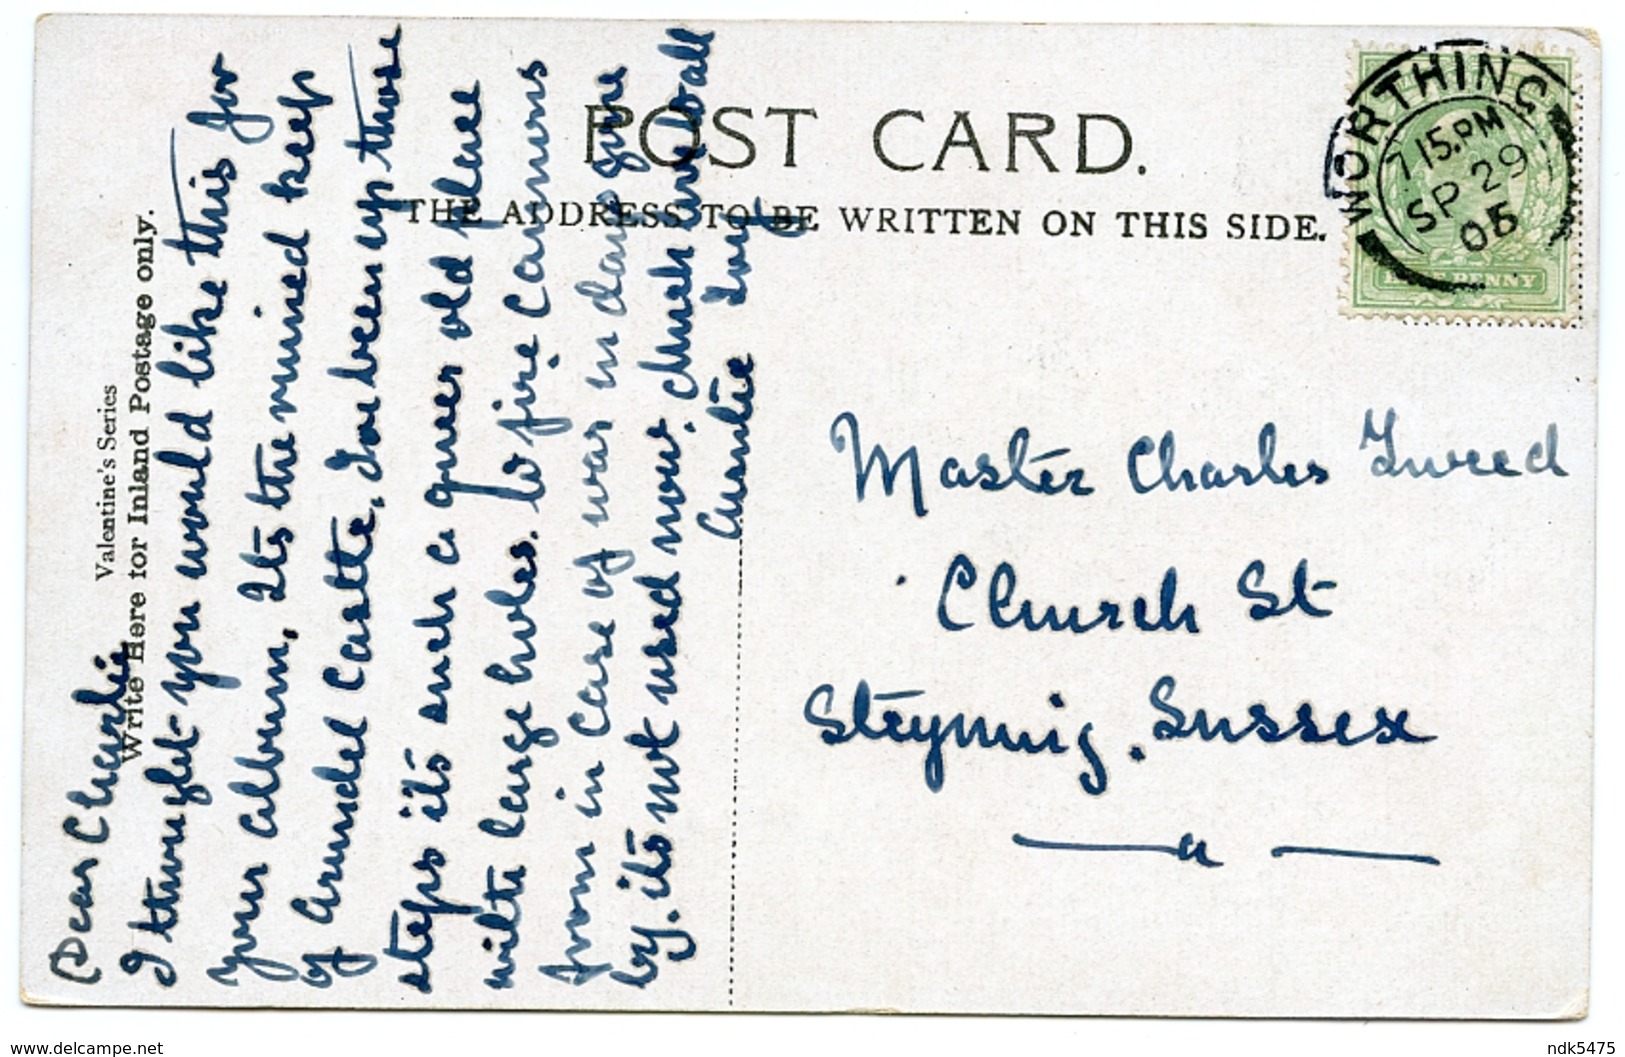 POST CARD.
THE ADDRESS TO BE WRITTEN ON THIS SIDE.
Valentine's Series
Write Here for Inland Postage only.
Dear Charlie
I thought you would like this for
your album, Its the ruined keep
of Arundel Castle, I've been up those
steps its such a queer old place
with large holes. to fire cannons
from in case of war in days gone
by. its not used now. much love to all
Auntie
WORTHING
7 15.PM
SP 29
05
HALF PENNY
Master Charles Tweed
Church St
Steyning. Sussex
www.delcampe.net
ndk5475